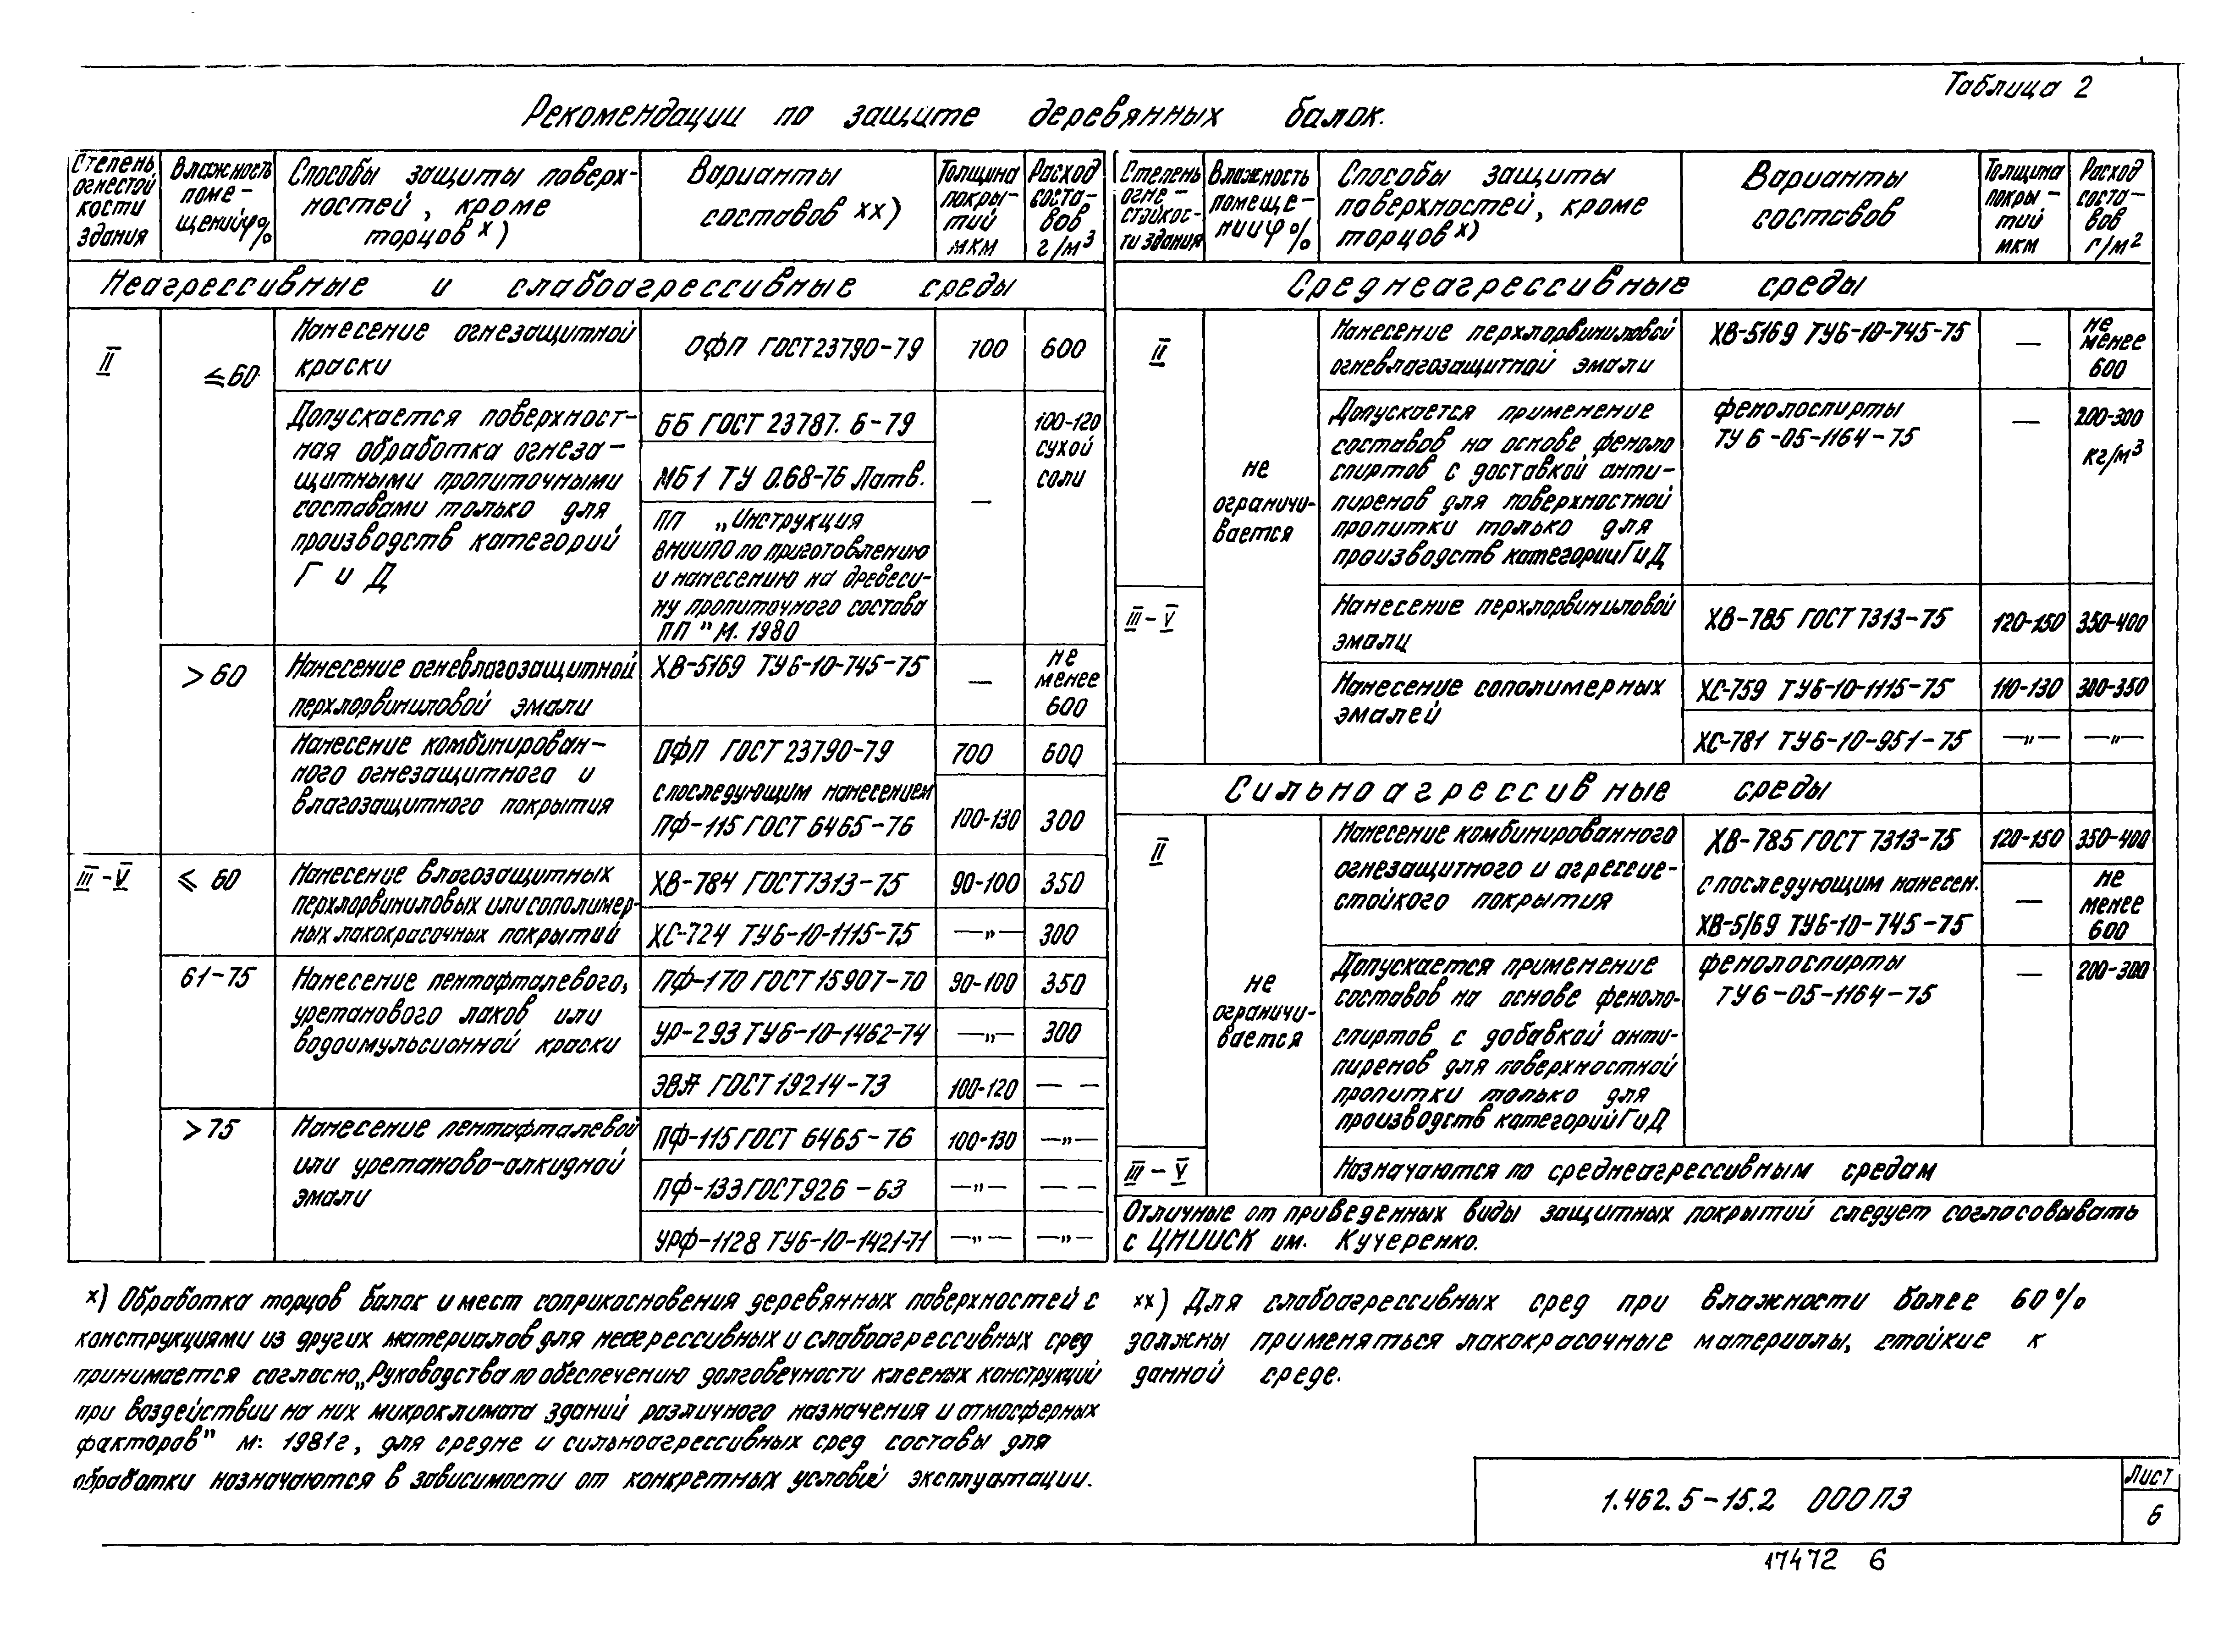 Таблица 2
Рекомендации по защите деревянных балок.
Степень огнестой кости здания
Влажность поме- щений φ%
Способы защиты поверх- ностей, кроме торцов х)
Варианты составов хх)
Толщина покры- тий мкм
Расход соста- вов г/м3
Неагрессивные и слабоагрессивные среды
II
≤60
Нанесение огнезащитной
краски
ОФП ГОСТ 23790-79
700
600
Допускается поверхност-
ная обработка огнеза-
щитными пропиточными
составами только для
производств категорий
Г и Д
ББ ГОСТ 23787. 6-79
МБ1 ТУ 0.68-76 Латв.
ПП „Инструкция
ВНИИПО по приготовлению
и нанесению на древеси-
ну пропиточного состава
ПП" М. 1980
—
100-120
сухой
соли
>60
Нанесение огневлагозащитной
перхлорвиниловой эмали
ХВ-5169 ТУ6-10-745-75
—
не
менее
600
Нанесение комбинирован-
ного огнезащитного и
влагозащитного покрытия
ОФП ГОСТ 23790-79
700
600
с последующим нанесением
ПФ-115 ГОСТ 6465-76
100-130
300
III-V
≤ 60
Нанесение влагозащитных
перхлорвиниловых или сополимер-
ных лакокрасочных покрытий
ХВ-784 ГОСТ 7313-75
90-100
350
ХС-724 ТУ6-10-1115-75
—„—
300
61-75
Нанесение пентафталевого,
уретанового лаков или
водоимульсионной краски
ПФ-170 ГОСТ 15907-70
90-100
350
УР-293 ТУ6-10-1462-74
—„—
300
ЭВА ГОСТ 19214-73
100-120
— —
>75
Нанесение пентафталевой
или уретаново-алкидной
эмали
ПФ-115 ГОСТ 6465-76
100-130
—„—
ПФ-133 ГОСТ 926-63
—„—
— —
УРФ-1128 ТУ6-10-1421-71
—„—
—„—
Степень огне- стойкос- ти здания
Влажность помеще- нии φ%
Способы защиты поверхностей, кроме торцов х)
Варианты составов
Толщина покры- тий мкм
Расход соста- вов г/м2
Среднеагрессивные среды
II
не
ограничи-
вается
Нанесение перхлорвиниловой
огневлагозащитной эмали
ХВ-5169 ТУ6-10-745-75
—
не
менее
600
Допускается применение
составов на основе феноло
спиртов с доставкой анти-
пиренов для поверхностной
пропитки только для
производств категории Г и Д
фенолоспирты
ТУ 6-05-1164-75
—
200-300
кг/м3
III-V
Нанесение перхлорвиниловой
эмали
ХВ-785 ГОСТ 7313-75
120-150
350-400
Нанесение сополимерных
эмалей
ХС-759 ТУ6-10-1115-75
110-130
300-350
ХС-781 ТУ6-10-951-75
—„—
—„—
Сильноагрессивные среды
II
не
ограничи-
вается
Нанесение комбинированного
огнезащитного и агрессие-
стойкого покрытия
ХВ-785 ГОСТ 7313-75
120-150
350-400
с последующим нанесен.
ХВ-5169 ТУ6-10-745-75
—
не
менее
600
Допускается применение
составов на основе феноло-
спиртов с добавкой анти-
пиренов для поверхностной
пропитки только для
производств категорий Г и Д
фенолоспирты
ТУ6-05-1164-75
—
200-300
III-V
Назначаются по среднеагрессивным средам
Отличные от приведенных виды защитных покрытий следует согласовывать
с ЦНИИСК им. Кучеренко.
х) Обработка торцов балок и мест соприкосновения деревянных поверхностей с
конструкциями из других материалов для неагрессивных и слабоагрессивных сред
принимается согласно „Руководства по обеспечению долговечности клееных конструкций
при воздействии на них микроклимата зданий различного назначения и атмосферных
факторов" М: 1981г, для средне и сильноагрессивных сред составы для
обработки назначаются в зависимости от конкретных условий эксплуатации.
хх) Для слабоагрессивных сред при влажности более 60%
должны применяться лакокрасочные материалы, стойкие к
данной среде.
1.462.5-15.2 000ПЗ
Лист
6
17472 6